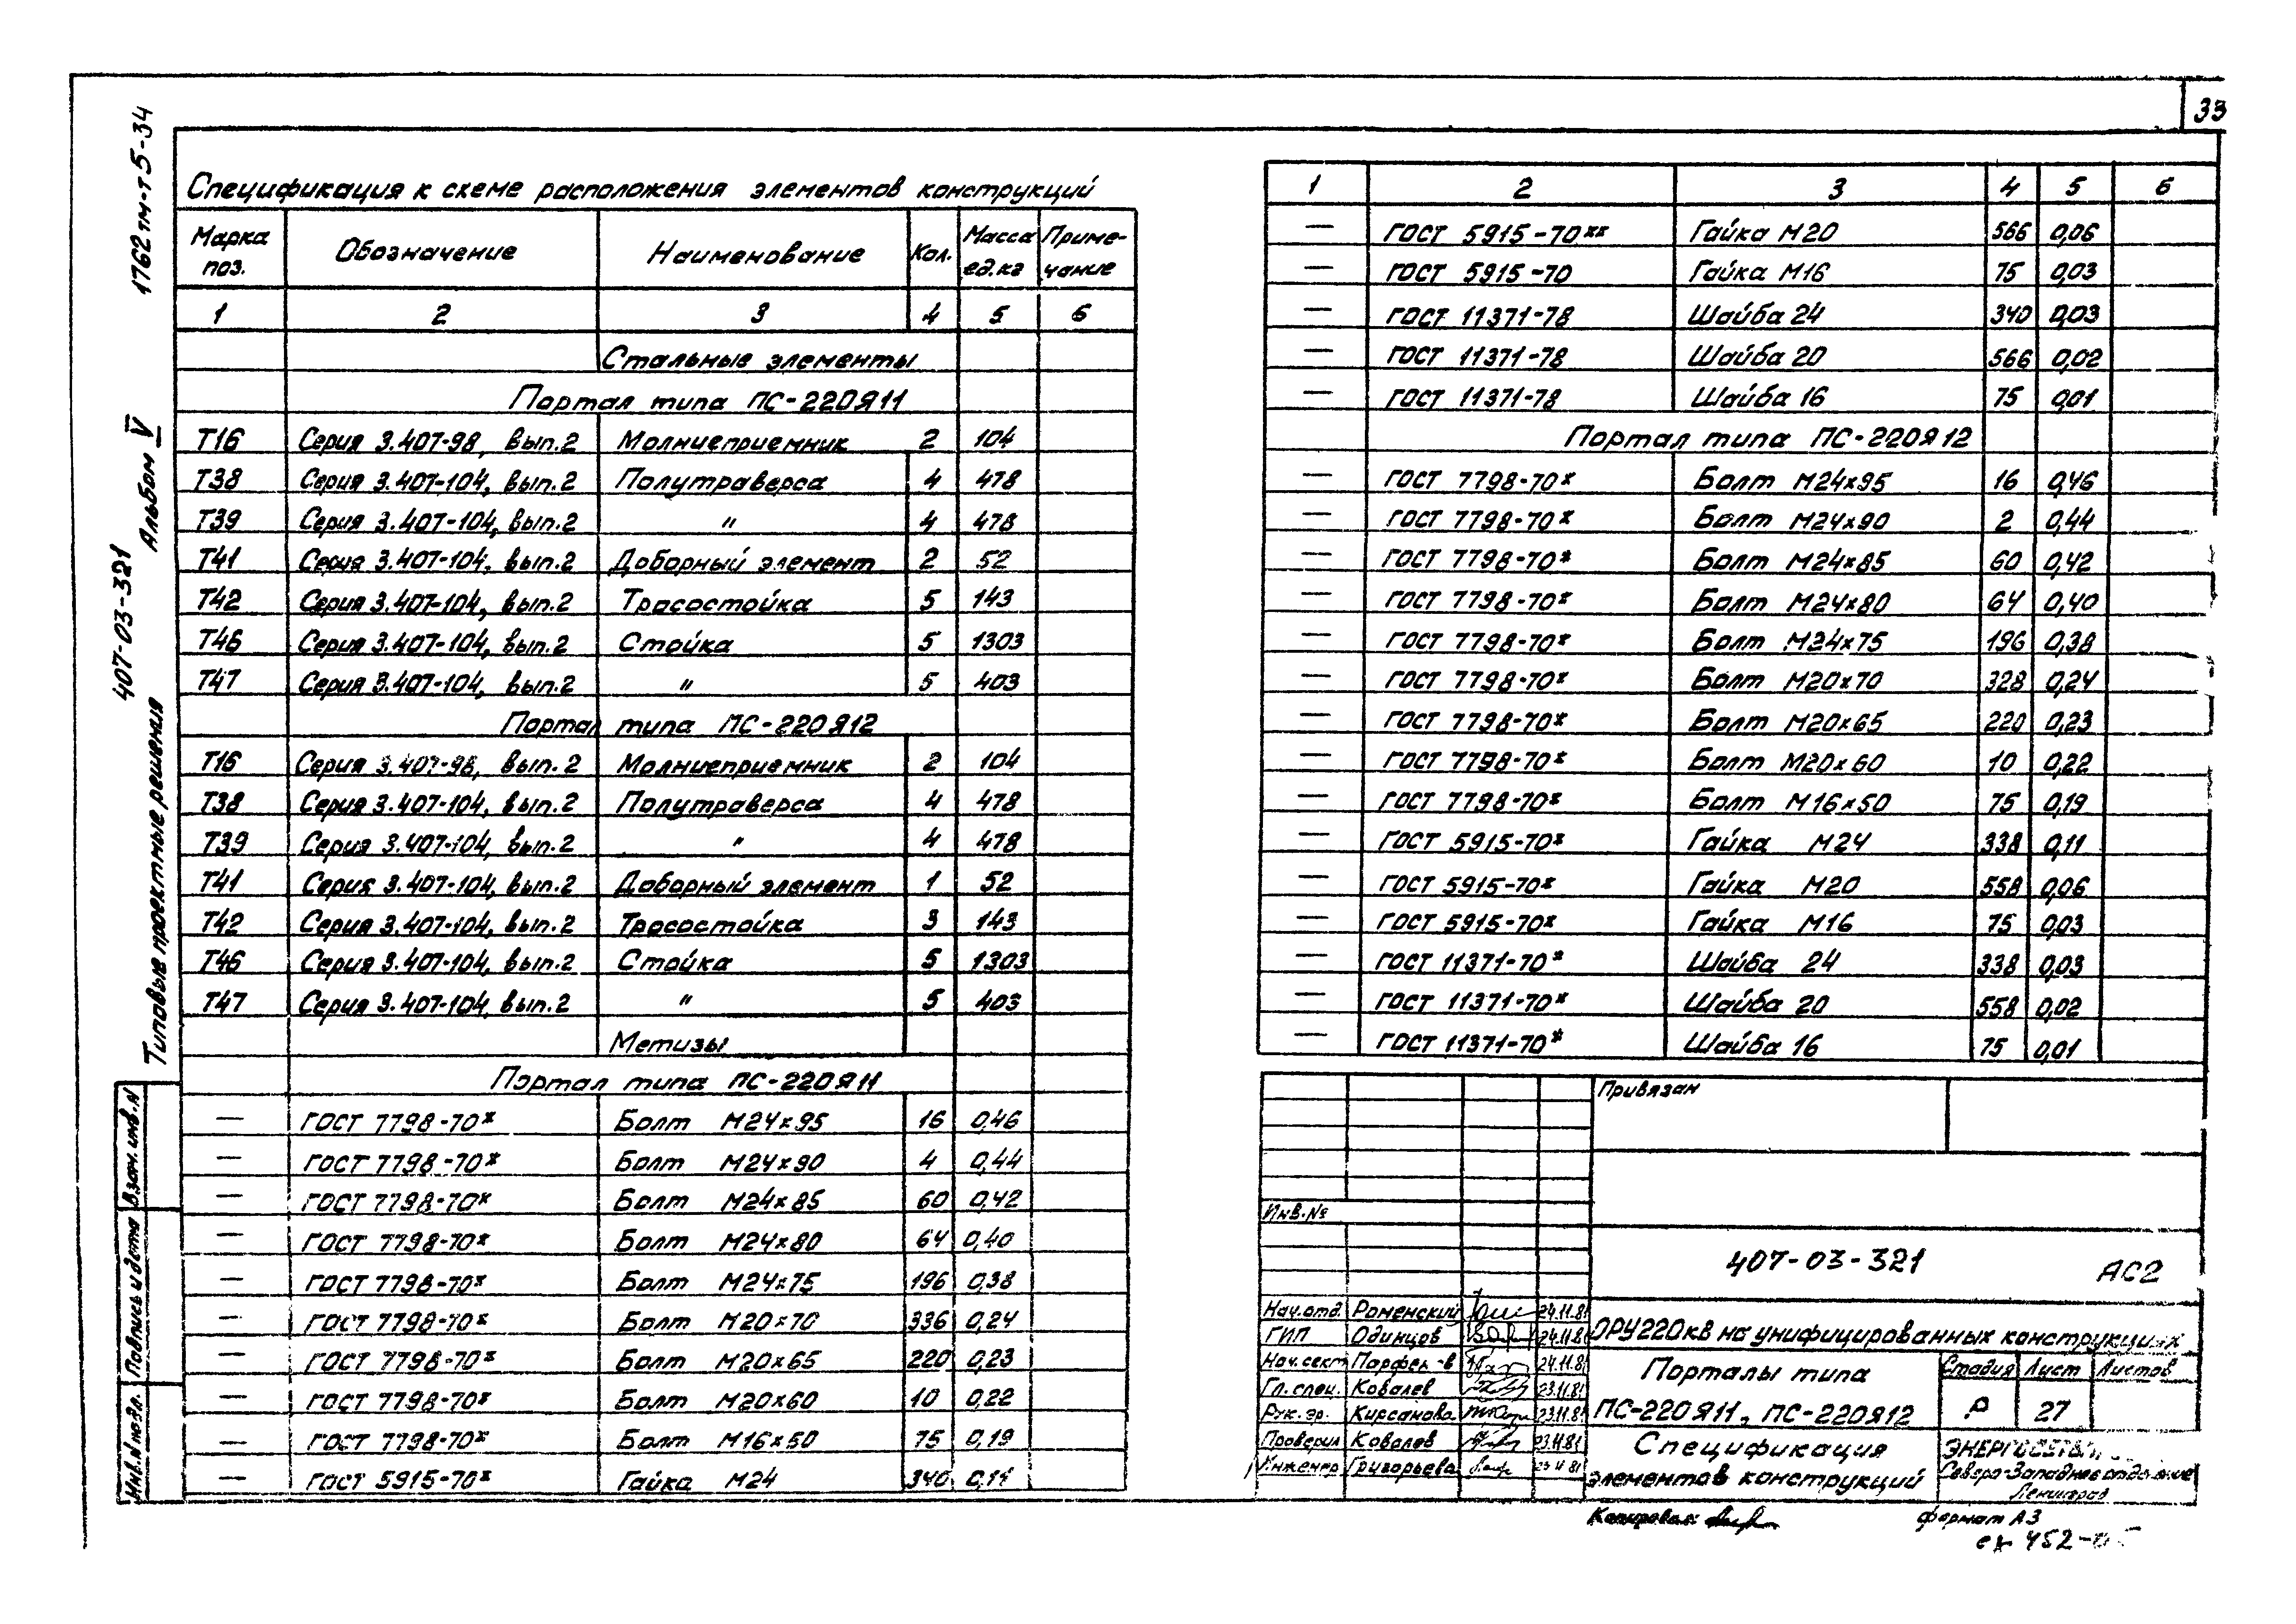 33
1762тм-т5-34
Альбом V
407-03-321
Типовые проектные решения
Взам. инв. N
Подпись и дата
Инв. N подл.
Спецификация к схеме расположения элементов конструкций
Марка поз. Обозначение Наименование Кол. Масса ед. кг Приме-чание
1 2 3 4 5 6
Стальные элементы
Портал типа ПС-220Я11
Т16 Серия 3.407-98, вып.2 Молниеприемник 2 104
Т38 Серия 3.407-104, вып.2 Полутраверса 4 478
Т39 Серия 3.407-104, вып.2 " 4 478
Т41 Серия 3.407-104, вып.2 Доборный элемент 2 52
Т42 Серия 3.407-104, вып.2 Тросостойка 5 143
Т46 Серия 3.407-104, вып.2 Стойка 5 1303
Т47 Серия 3.407-104, вып.2 " 5 403
Портал типа ПС-220Я12
Т16 Серия 3.407-98, вып.2 Молниеприемник 2 104
Т38 Серия 3.407-104, вып.2 Полутраверса 4 478
Т39 Серия 3.407-104, вып.2 " 4 478
Т41 Серия 3.407-104, вып.2 Доборный элемент 1 52
Т42 Серия 3.407-104, вып.2 Тросостойка 3 143
Т46 Серия 3.407-104, вып.2 Стойка 5 1303
Т47 Серия 3.407-104, вып.2 " 5 403
Метизы
Портал типа ПС-220Я11
— ГОСТ 7798-70* Болт М24×95 16 0,46
— ГОСТ 7798-70* Болт М24×90 4 0,44
— ГОСТ 7798-70* Болт М24×85 60 0,42
— ГОСТ 7798-70* Болт М24×80 64 0,40
— ГОСТ 7798-70* Болт М24×75 196 0,38
— ГОСТ 7798-70* Болт М20×70 336 0,24
— ГОСТ 7798-70* Болт М20×65 220 0,23
— ГОСТ 7798-70* Болт М20×60 10 0,22
— ГОСТ 7798-70* Болт М16×50 75 0,19
— ГОСТ 5915-70* Гайка М24 340 0,11
1 2 3 4 5 6
— ГОСТ 5915-70** Гайка М20 566 0,06
— ГОСТ 5915-70 Гайка М16 75 0,03
— ГОСТ 11371-78 Шайба 24 340 0,03
— ГОСТ 11371-78 Шайба 20 566 0,02
— ГОСТ 11371-78 Шайба 16 75 0,01
Портал типа ПС-220Я12
— ГОСТ 7798-70* Болт М24×95 16 0,46
— ГОСТ 7798-70* Болт М24×90 2 0,44
— ГОСТ 7798-70* Болт М24×85 60 0,42
— ГОСТ 7798-70* Болт М24×80 64 0,40
— ГОСТ 7798-70* Болт М24×75 196 0,38
— ГОСТ 7798-70* Болт М20×70 328 0,24
— ГОСТ 7798-70* Болт М20×65 220 0,23
— ГОСТ 7798-70* Болт М20×60 10 0,22
— ГОСТ 7798-70* Болт М16×50 75 0,19
— ГОСТ 5915-70* Гайка М24 338 0,11
— ГОСТ 5915-70* Гайка М20 558 0,06
— ГОСТ 5915-70* Гайка М16 75 0,03
— ГОСТ 11371-70* Шайба 24 338 0,03
— ГОСТ 11371-70* Шайба 20 558 0,02
— ГОСТ 11371-70* Шайба 16 75 0,01
Привязан
Инв.№
407-03-321 АС2
Нач.отд. Роменский 24.11.81
ГИП Одинцов 24.11.81
Нач.сект. 24.11.81
Гл.спец. Ковалев 23.11.81
Рук.гр. Кирсанова 23.11.81
Проверил Ковалев 23.11.81
Инженер Григорьева 23.11.81
ОРУ 220кв на унифицированных конструкциях
Порталы типа ПС-220Я11, ПС-220Я12
Стадия Лист Листов
Р 27
Спецификация элементов конструкций
Северо-Западное отделение
Ленинград
Копировал:
формат А3